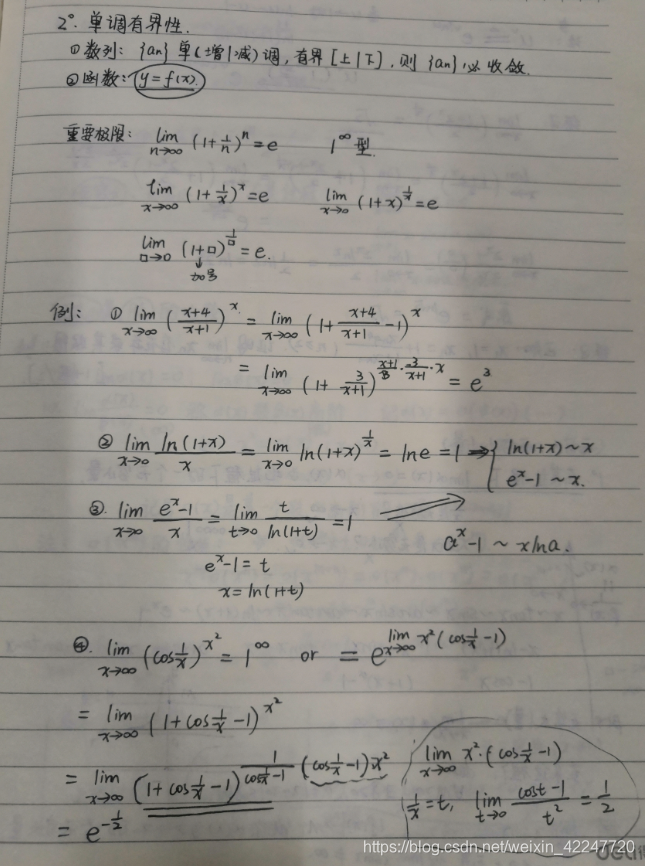 2°. 单调有界性.
① 数列: {an} 单(增|减)调, 有界[上|下], 则 {an} 必收敛.
② 函数: y=f(x)
重要极限: lim n→∞ (1+1/n)^n = e 1^∞型.
lim x→∞ (1+1/x)^x = e lim x→0 (1+x)^(1/x) = e
lim □→0 (1+□)^(1/□) = e.
加号
例: ① lim x→∞ ((x+4)/(x+1))^x = lim x→∞ (1+(x+4)/(x+1)-1)^x
= lim x→∞ (1+3/(x+1))^((x+1)/3·3/(x+1)·x) = e^3
② lim x→0 ln(1+x)/x = lim x→0 ln(1+x)^(1/x) = lne = 1 ⇒ { ln(1+x)~x
e^x-1~x.
③ lim x→0 (e^x-1)/x = lim t→0 t/ln(1+t) = 1
a^x-1 ~ xlna.
e^x-1=t
x=ln(1+t)
④. lim x→∞ (cos1/x)^(x^2) = 1^∞ or = e^(lim x→∞ x^2(cos1/x-1))
= lim x→∞ (1+cos1/x-1)^(x^2)
= lim x→∞ (1+cos1/x-1)^(1/(cos1/x-1)·(cos1/x-1)x^2)
= e^(-1/2)
lim x→∞ x^2·(cos1/x-1)
1/x=t, lim t→0 (cost-1)/t^2 = 1/2
https://blog.csdn.net/weixin_42247720